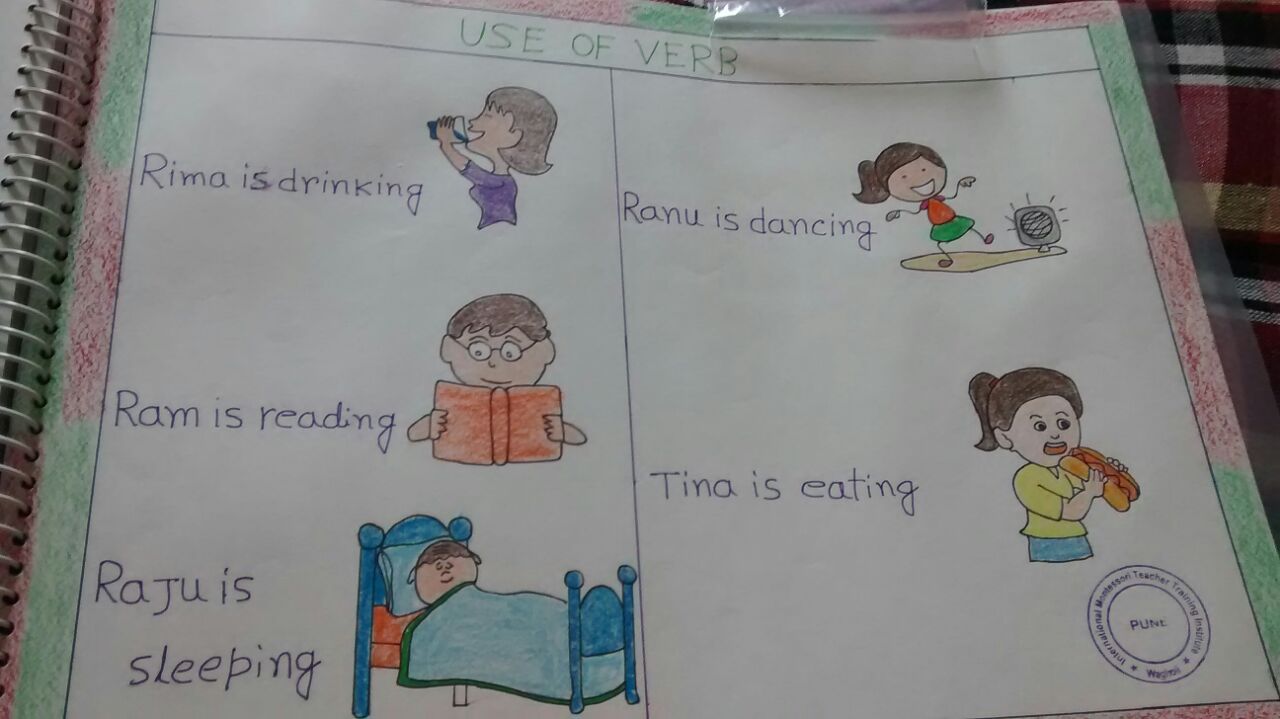 USE OF VERB
Rima is drinking
Ram is reading
Raju is
sleeping
Ranu is dancing
Tina is eating
International Montessori Teacher Training Institute
PUNE
Wagholi